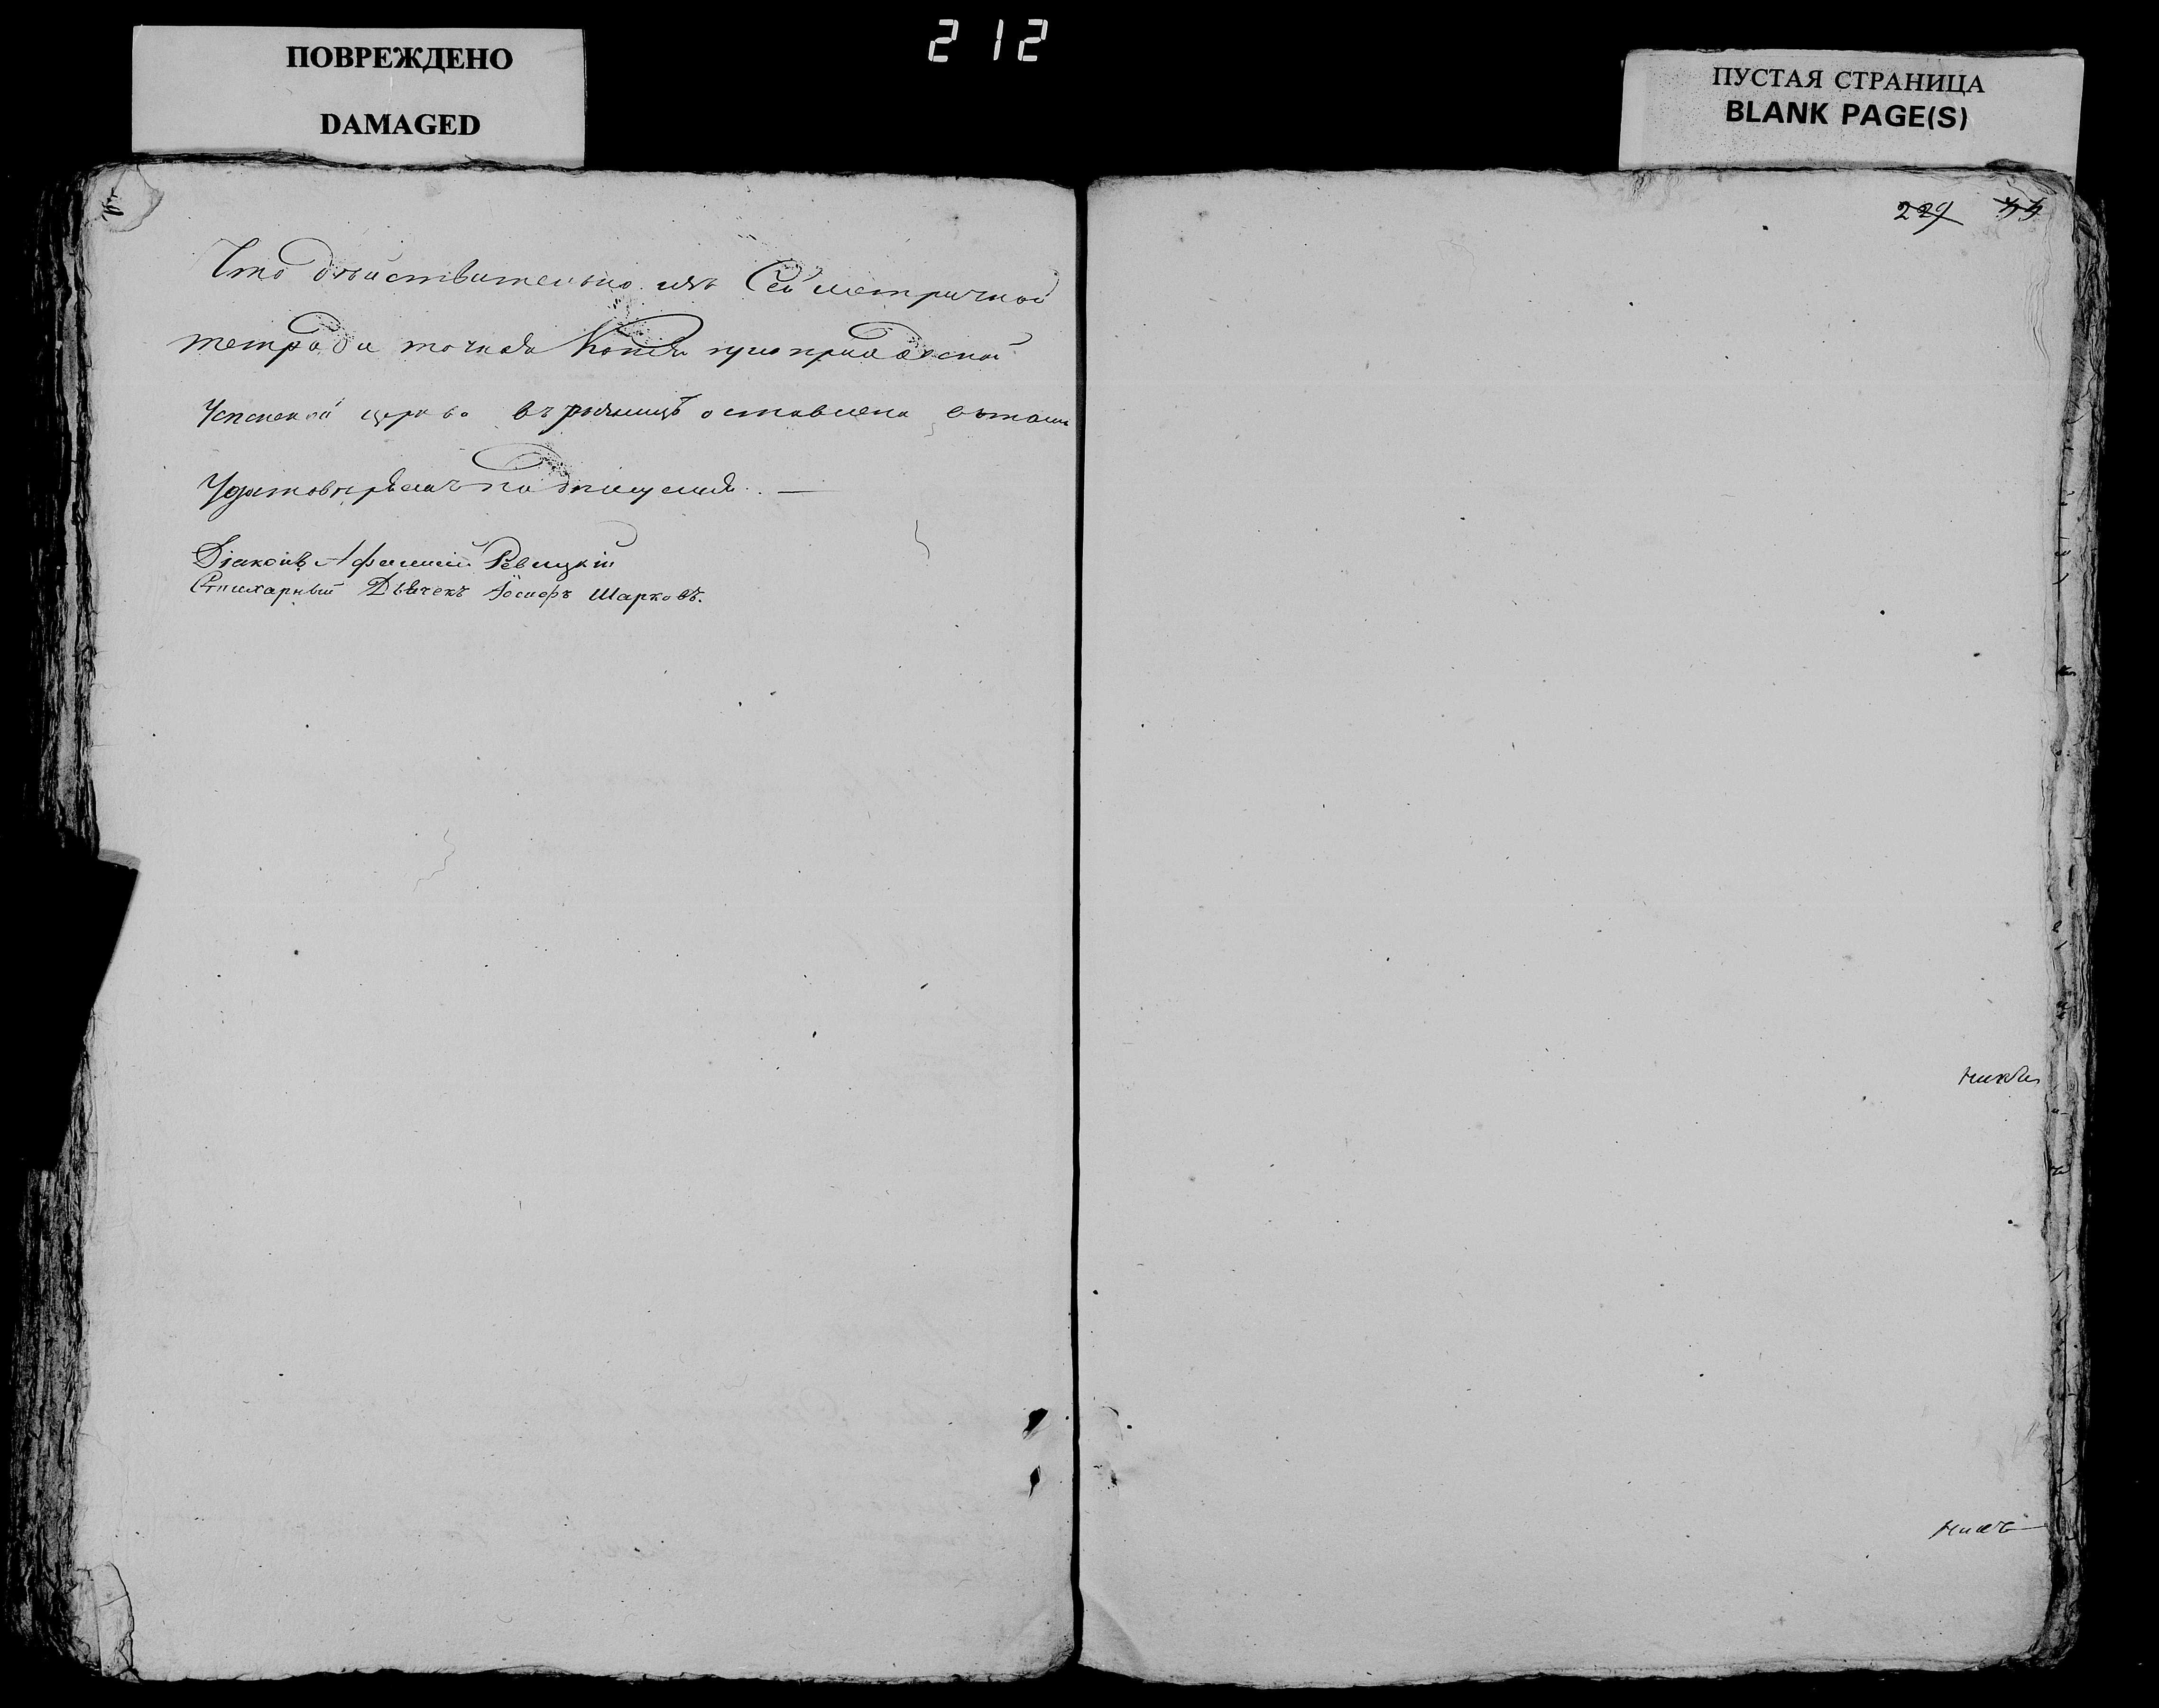 ПОВРЕЖДЕНО
DAMAGED
212
ПУСТАЯ СТРАНИЦА
BLANK PAGE(S)
229
Что действительно изъ Сей метричной
тетради точная Копія при приходской
Успенской церкве въ оставлена вътомъ
Удостоверяемъ подписуемся. —
Діаконъ Афанасій Ревицкій
Стихарный Дьячекъ Іосифъ Шарковъ.